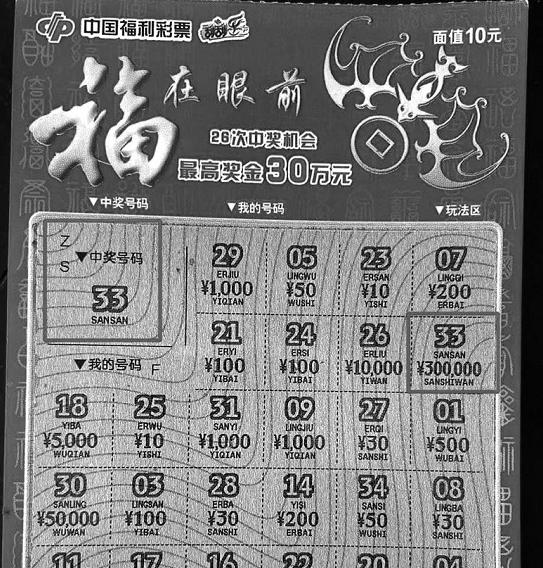 中国福利彩票 刮刮乐
面值10元
福在眼前
26次中奖机会
最高奖金30万元
▼中奖号码 ▼我的号码 ▼玩法区
Z
S
▼中奖号码
33
SANSAN
29 05 23 07
ERJIU LINGWU ERSAN LINGQI
¥1,000 ¥50 ¥10 ¥200
YIQIAN WUSHI YISHI ERBAI
21 24 26 33
ERYI ERSI ERLIU SANSAN
¥100 ¥100 ¥10,000 ¥300,000
YIBAI YIBAI YIWAN SANSHIWAN
▼我的号码 F
18 25 31 09 27 01
YIBA ERWU SANYI LINGJIU ERQI LINGYI
¥5,000 ¥10 ¥1,000 ¥1,000 ¥30 ¥500
WUQIAN YISHI YIQIAN YIQIAN SANSHI WUBAI
30 03 28 14 34 08
SANLING LINGSAN ERBA YISI SANSI LINGBA
¥50,000 ¥100 ¥30 ¥200 ¥50 ¥30
WUWAN YIBAI SANSHI ERBAI WUSHI SANSHI
11 17 16 22 20 04